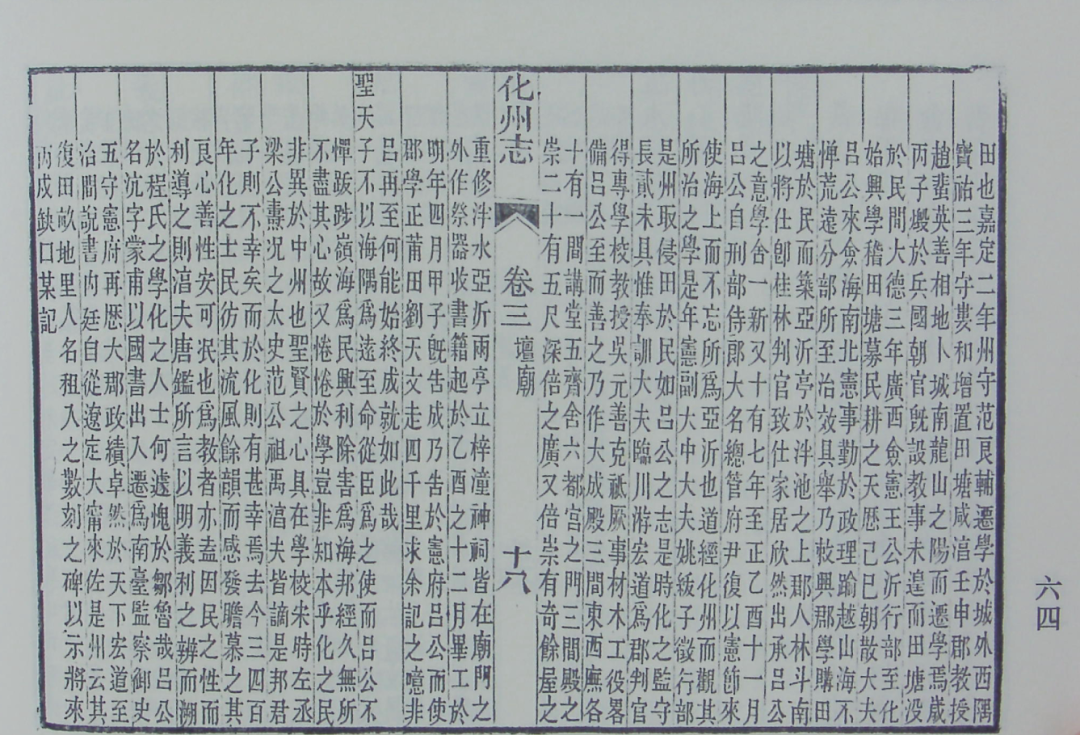 田也嘉定二年州守范良輔遷學於城外西隅
寶祐三年守婁和增置田塘咸淳壬申郡教授
趙蜚英善相地卜城南龍山之陽而遷學焉歲
丙子燬於兵國朝官旣設教事未遑而田塘没
於民間大德三年廣西僉憲王公沂行部至化
始興學稽田塘募民耕之天歷己巳朝散大夫
呂公來僉海南北憲事勤於政理踰越山海不
惮荒遠分部所至治效具舉乃敕興郡學購田
塘於民而築亞沂亭於泮池之上郡人林斗南
以將仕卽桂林判官致仕家居欣然出承呂公
之意學舍一新又十有七年至正乙酉十一月
呂公自刑部侍郎大名總管府尹復以憲節來
使海上而不忘所爲亞沂也道經化州而觀其
所治之學是年憲副大中大夫姚紱子徵行部
是州取侵田於民如呂公之志是時化之監守
長貳未具惟奉訓大夫臨川游宏道爲郡判官
得專學校教授吳元善克祗厥事材木工役畧
備呂公至而善之乃作大成殿三間東西廡各
十有一間講堂五齊舍六都宫之門三間殿之
崇二十有五尺深倍之廣又倍崇有奇餘屋之
化州志 卷三 壇廟 十八
重修泮水亞沂兩亭立梓潼神祠皆在廟門之
外作祭器收書籍起於乙酉之十二月畢工於
明年四月甲子旣告成乃告於憲府呂公而使
郡學正莆田劉天文走四千里求余記之噫非
呂再至何能始終成就如此哉
聖天子不以海隅爲遠至命從臣爲之使而呂公不
憚跋踄嶺海爲民興利除害爲海邦經久無所
不盡其心故又惓惓於學豈非知本乎化之民
非異於中州也聖賢之心具在學校宋時左丞
梁公燾況之太史范公祖禹淳夫皆謫是邦君
子則不幸矣而於化則有甚幸焉去今三四百
年化之士民彷其流風餘韻而感發瞻慕之其
良心善性安可泯也爲教者亦盍因民之性而
利導之則淳夫唐鑑所言以明義利之辨而溯
於程氏之學化之人士何遽愧於鄒魯哉呂公
名沆字蒙甫以國書出入遷爲南臺監察御史
五守憲府再歷大郡政績卓然於天下宏道至
治間說書内廷自從遼定大甯來佐是州云其
復田畝地里人名租入之數刻之碑以示將來
丙戌缺口某記
六四